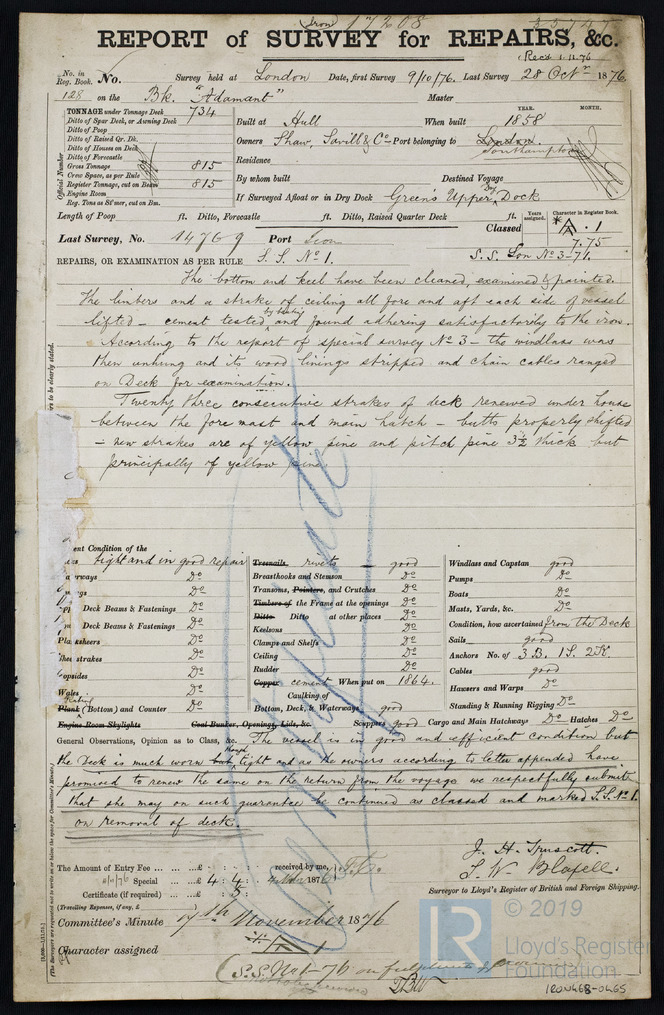 Iron 17208
REPORT of SURVEY for REPAIRS, &c.
Recd 1.11.76
No. in Reg. Book. No. Survey held at London Date, first Survey 9/10/76. Last Survey 28 Octr 1876
128 on the Bk. "Adamant" Master
TONNAGE under Tonnage Deck 734
Ditto of Spar Deck, or Awning Deck
Ditto of Poop
Ditto of Raised Qr. Dk.
Ditto of Houses on Deck
Ditto of Forecastle
Gross Tonnage 815
Crew Space, as per Rule
Register Tonnage, cut on Beam 815
Engine Room
Reg. Tons as St'mer, cut on Bm.
Official Number
Built at Hull When built YEAR. 1858 MONTH.
Owners Shaw, Savill & Co Port belonging to London.
Southampton
Residence
By whom built Destined Voyage
If Surveyed Afloat or in Dry Dock Green's Upper Dry Dock
Length of Poop ft. Ditto, Forecastle ft. Ditto, Raised Quarter Deck ft.
Classed Years assigned. Character in Register Book. A . 1
7.75
Last Survey, No. 14769 Port Iron
S.S. Lon No 3-71.
REPAIRS, OR EXAMINATION AS PER RULE S.S. No 1.
The bottom and keel have been cleaned, examined & painted.
The limbers and a strake of ceiling all fore and aft each side of vessel
lifted - cement tested by beating and found adhering satisfactorily to the iron.
According to the report of special survey No 3 - the windlass was
then unhung and its wood linings stripped and chain cables ranged
on Deck for examination.
Twenty three consecutive strakes of deck renewed under house
between the fore mast and main hatch - butts properly shifted
- new strakes are of yellow pine and pitch pine 3½ thick but
principally of yellow pine.
Certificate
ent Condition of the
tight and in good repair
Do
Do
Deck Beams & Fastenings Do
Deck Beams & Fastenings Do
Planksheers Do
Sheer strakes Do
Topsides Do
Wales Do
Plank Plating (Bottom) and Counter Do
Engine Room Skylights Coal Bunker, Openings, Lids, &c.
Treenails rivets good
Breasthooks and Stemson Do
Transoms, Pointers, and Crutches Do
Timbers of the Frame at the openings Do
Ditto Ditto at other places Do
Keelsons Do
Clamps and Shelfs Do
Ceiling Do
Rudder Do
Copper cement When put on 1864.
Caulking of
Bottom, Deck, & Waterways good
Scuppers good Cargo and Main Hatchways Do Hatches Do
Windlass and Capstan good
Pumps Do
Boats Do
Masts, Yards, &c. Do
Condition, how ascertained from the Deck
Sails good
Anchors No. of 3.B. 1S. 2K.
Cables good
Hawsers and Warps Do
Standing & Running Rigging Do
General Observations, Opinion as to Class, &c. The vessel is in good and efficient condition but
the Deck is much worn but though tight and as the owners according to letter appended have
promised to renew the same on the return from the voyage we respectfully submit
that she may on such guarantee be continued as classed and marked S.S. No 1.
on removal of deck.
J. H. Truscott.
Surveyor to Lloyd's Register of British and Foreign Shipping.
The Amount of Entry Fee £ : : received by me,
Special £ 4 : 4 :
Certificate (if required) £ : 5 :
(Travelling Expenses, if any, £ )
Committee's Minute 7th November 1876
Character assigned A 1
S.S. No 1-76 on fulfilment of promise
© 2019
LR
Lloyd's Register
Foundation
IRON468-0465